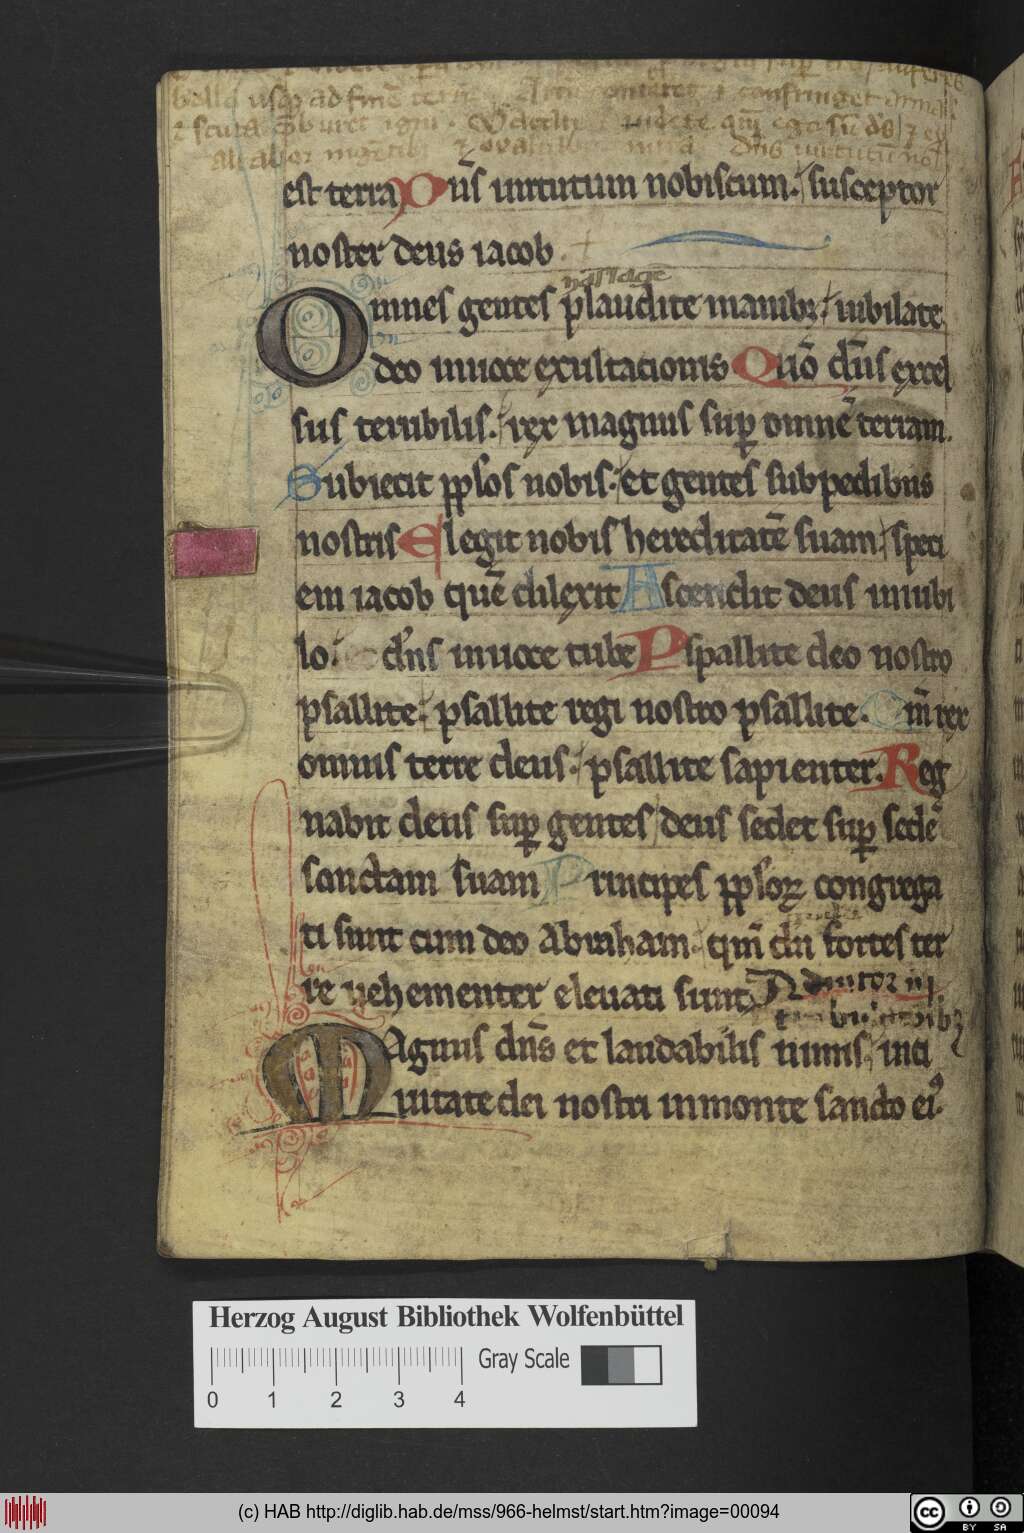 bella usqꝫ ad finē terre Arcū conteret ⁊ confringet arma
⁊ scuta ꝯburet igni. Vacate ⁊ videte qm̄ ego sū ds̄ ⁊ ex
altabor in gētibꝫ ⁊ exaltabor in terra dn̄s virtutū no
est terra Dn̄s uirtutum nobiscum. susceptor
noster deus iacob.
Omnes gentes plaudite manibꝫ iubilate
deo in uoce exultacionis Quō dn̄s excel
sus terribilis. rex magnus suꝑ omnē terram.
Subiecit ppl̄os nobis. et gentes sub pedibus
nostris Elegit nobis hereditatē suam speci
em iacob quē dilexit Ascendit deus in iubi
lo. et dn̄s in uoce tube Pspallite deo nostro
psallite. psallite regi nostro psallite. Qm̄ rex
omnis terre deus. psallite sapienter. Reg
nabit deus suꝑ gentes deus sedet suꝑ sedē
sanctam suam Principes ppl̄oꝝ congrega
ti sunt cum deo Abraham. qm̄ dii fortes ter
re uehementer eleuati sunt Adiutor in
tribulacoibꝫ
Magnus dn̄s et laudabilis nimis. in ci
uitate dei nostri in monte sancto eiꝰ.
Herzog August Bibliothek Wolfenbüttel
Gray Scale
0 1 2 3 4
(c) HAB http://diglib.hab.de/mss/966-helmst/start.htm?image=00094
cc BY SA